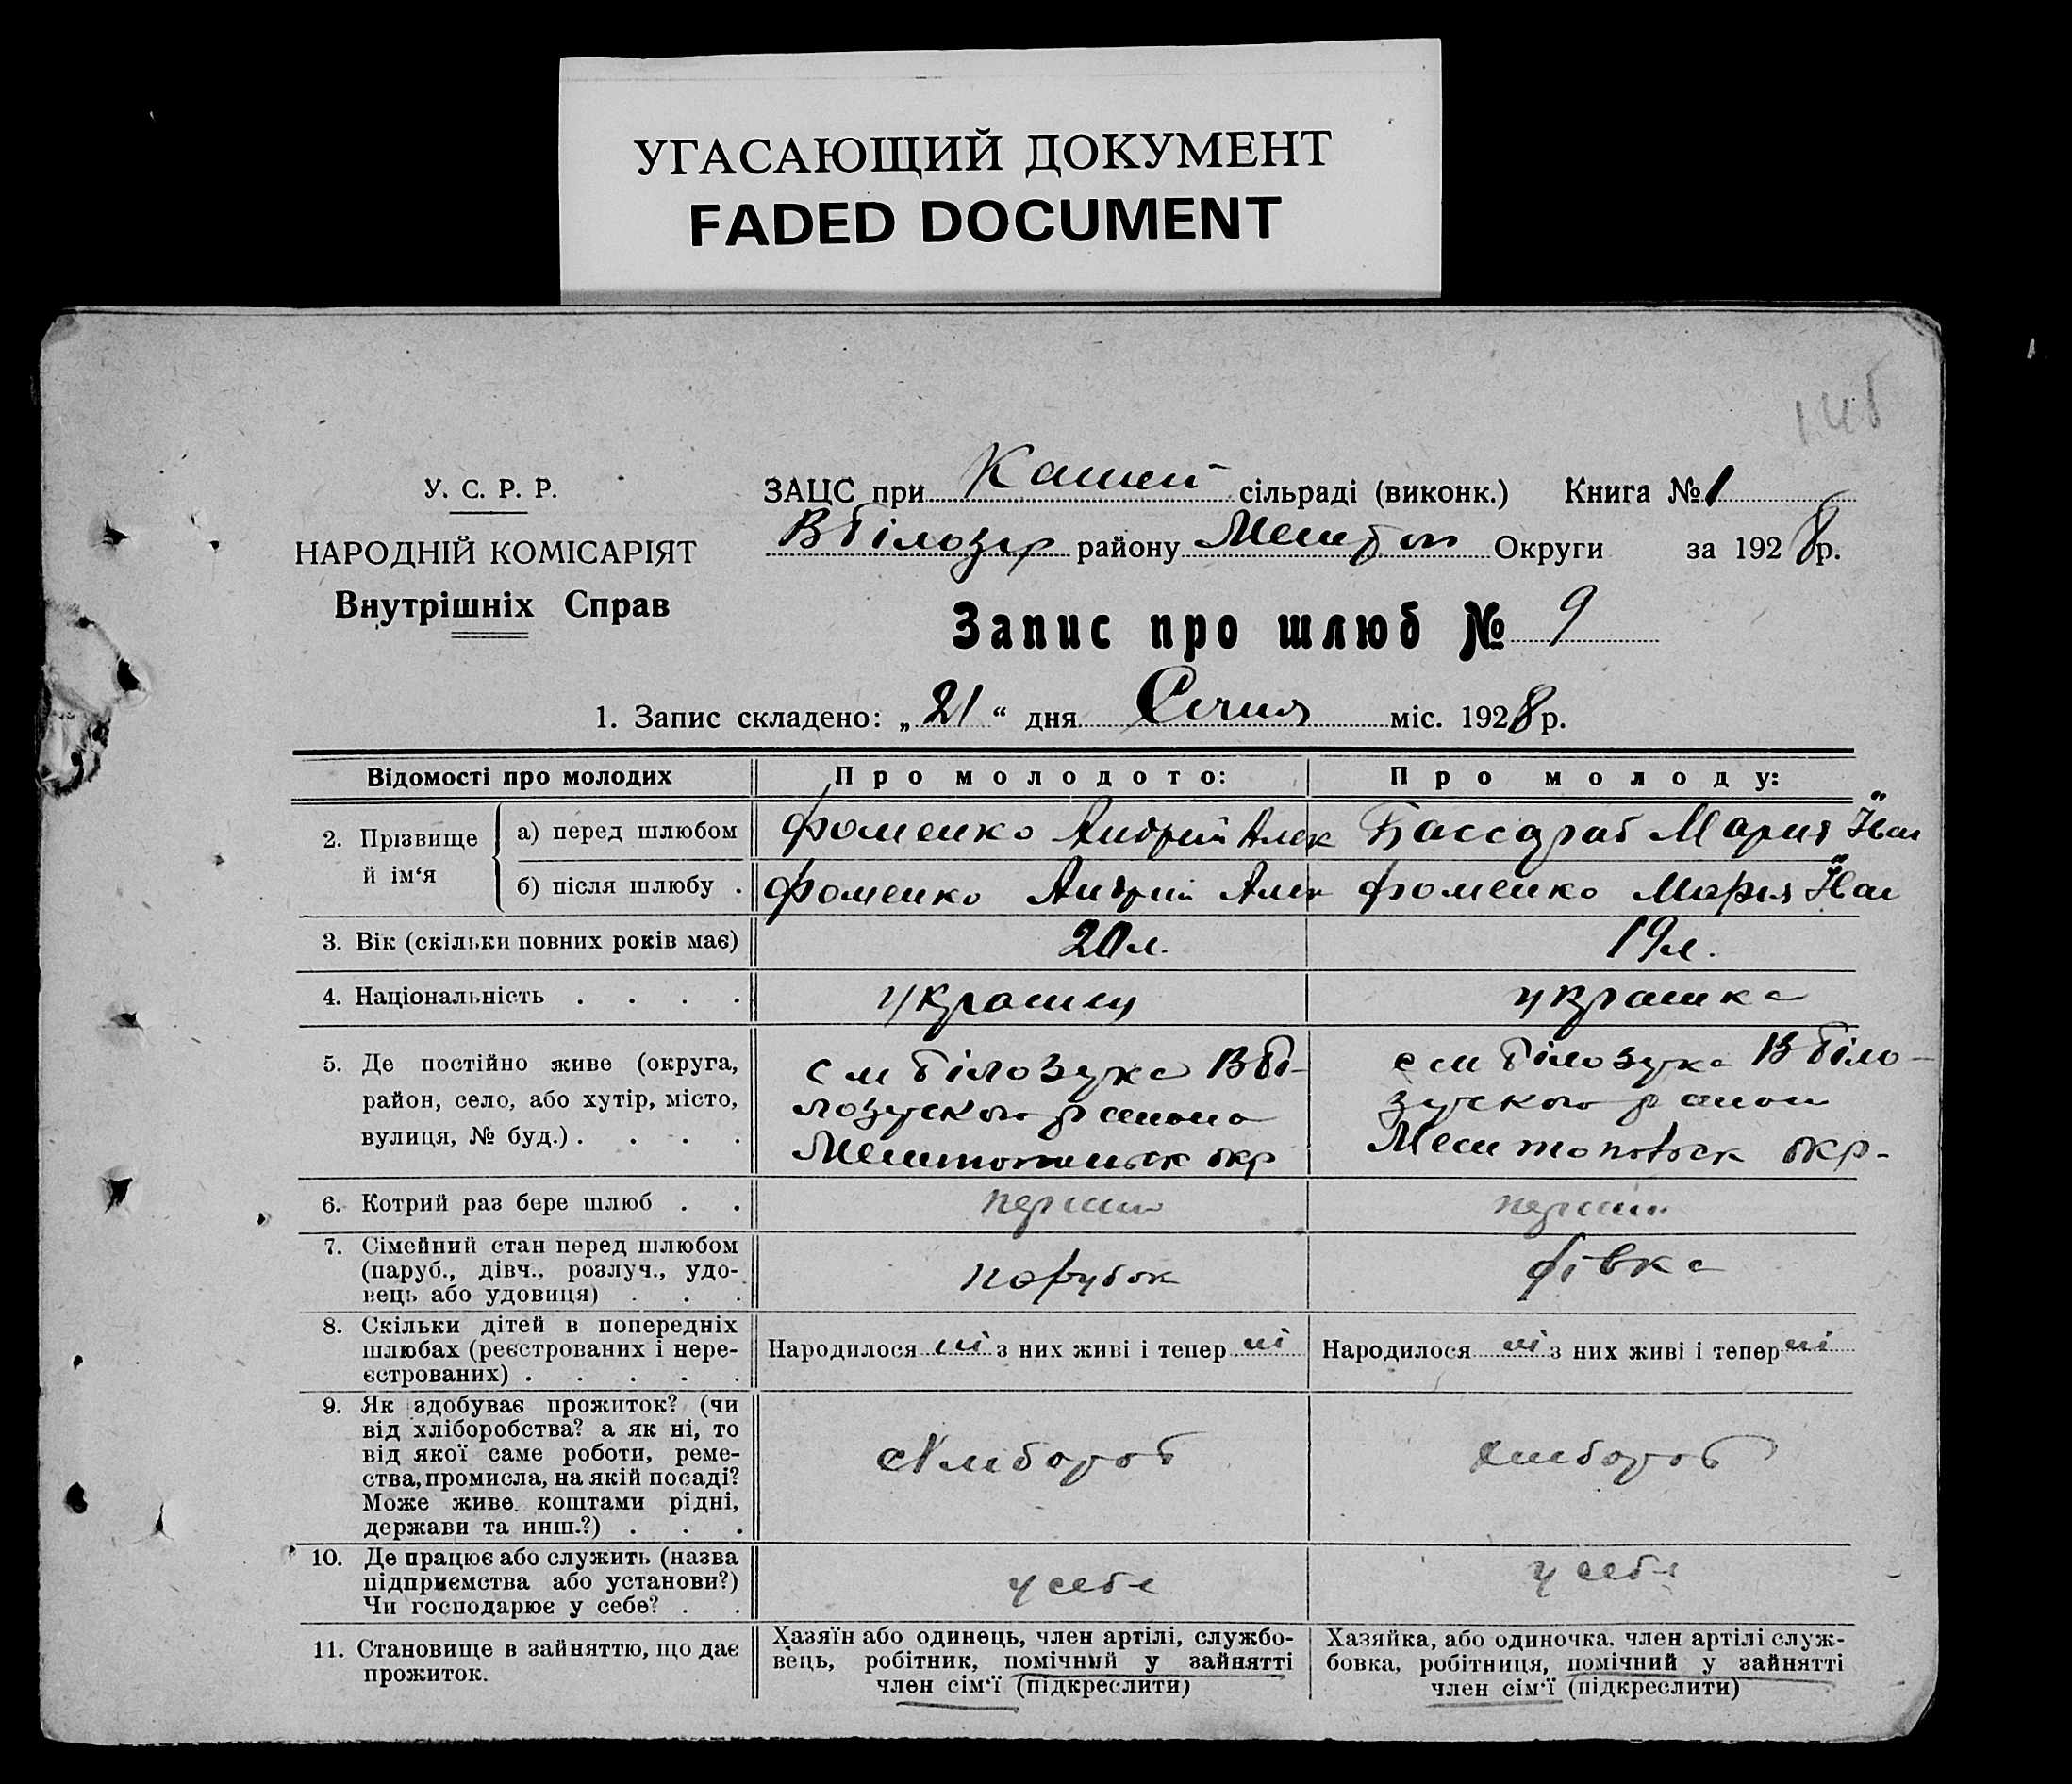 УГАСАЮЩИЙ ДОКУМЕНТ
FADED DOCUMENT
У. С. Р. Р.
НАРОДНІЙ КОМІСАРІЯТ
Внутрішніх Справ
ЗАЦС при сільраді (виконк.) Книга № 1
В Білозер району Мелитоп Округи за 1928 р.
Запис про шлюб № 9
1. Запис складено: „21“ дня Січня міс. 1928 р.
Відомості про молодих Про молодого: Про молоду:
2. Прізвище й ім‘я
а) перед шлюбом Фоменко Андрій Алек Бассараб Мария Іван
б) після шлюбу . Фоменко Андрій Алек Фоменко Мария Іван
3. Вік (скільки повних років має) 20 л. 19 л.
4. Національність . . . . украинц украинка
5. Де постійно живе (округа,
район, село, або хутір, місто,
вулиця, № буд.) . . . .
с м Білозерка В Бі-
лозерского района
Мелитопольск окр
с м Білозерка В Біло-
зерского район
Мелитопольск окр-
6. Котрий раз бере шлюб . . перший перший
7. Сімейний стан перед шлюбом
(паруб., дівч., розлуч., удо-
вець або удовиця) . . . парубок дівка
8. Скільки дітей в попередніх
шлюбах (реєстрованих і нере-
єстрованих) . . . . .
Народилося ні з них живі і тепер ні Народилося ні з них живі і тепер ні
9. Як здобуває прожиток? (чи
від хліборобства? а як ні, то
від якої саме роботи, реме-
ства, промисла, на якій посаді?
Може живе коштами рідні,
держави та инш.?) . . .
хлібороб хлібороб
10. Де працює або служить (назва
підприємства або установи?)
Чи господарює у себе? . .
у себе у себе
11. Становище в зайняттю, що дає
прожиток.
Хазяїн або одинець, член артілі, службо-
вець, робітник, помічний у зайнятті
член сім‘ї (підкреслити)
Хазяйка, або одиночка. член артілі служ-
бовка, робітниця, помічний у зайнятті
член сім‘ї (підкреслити)